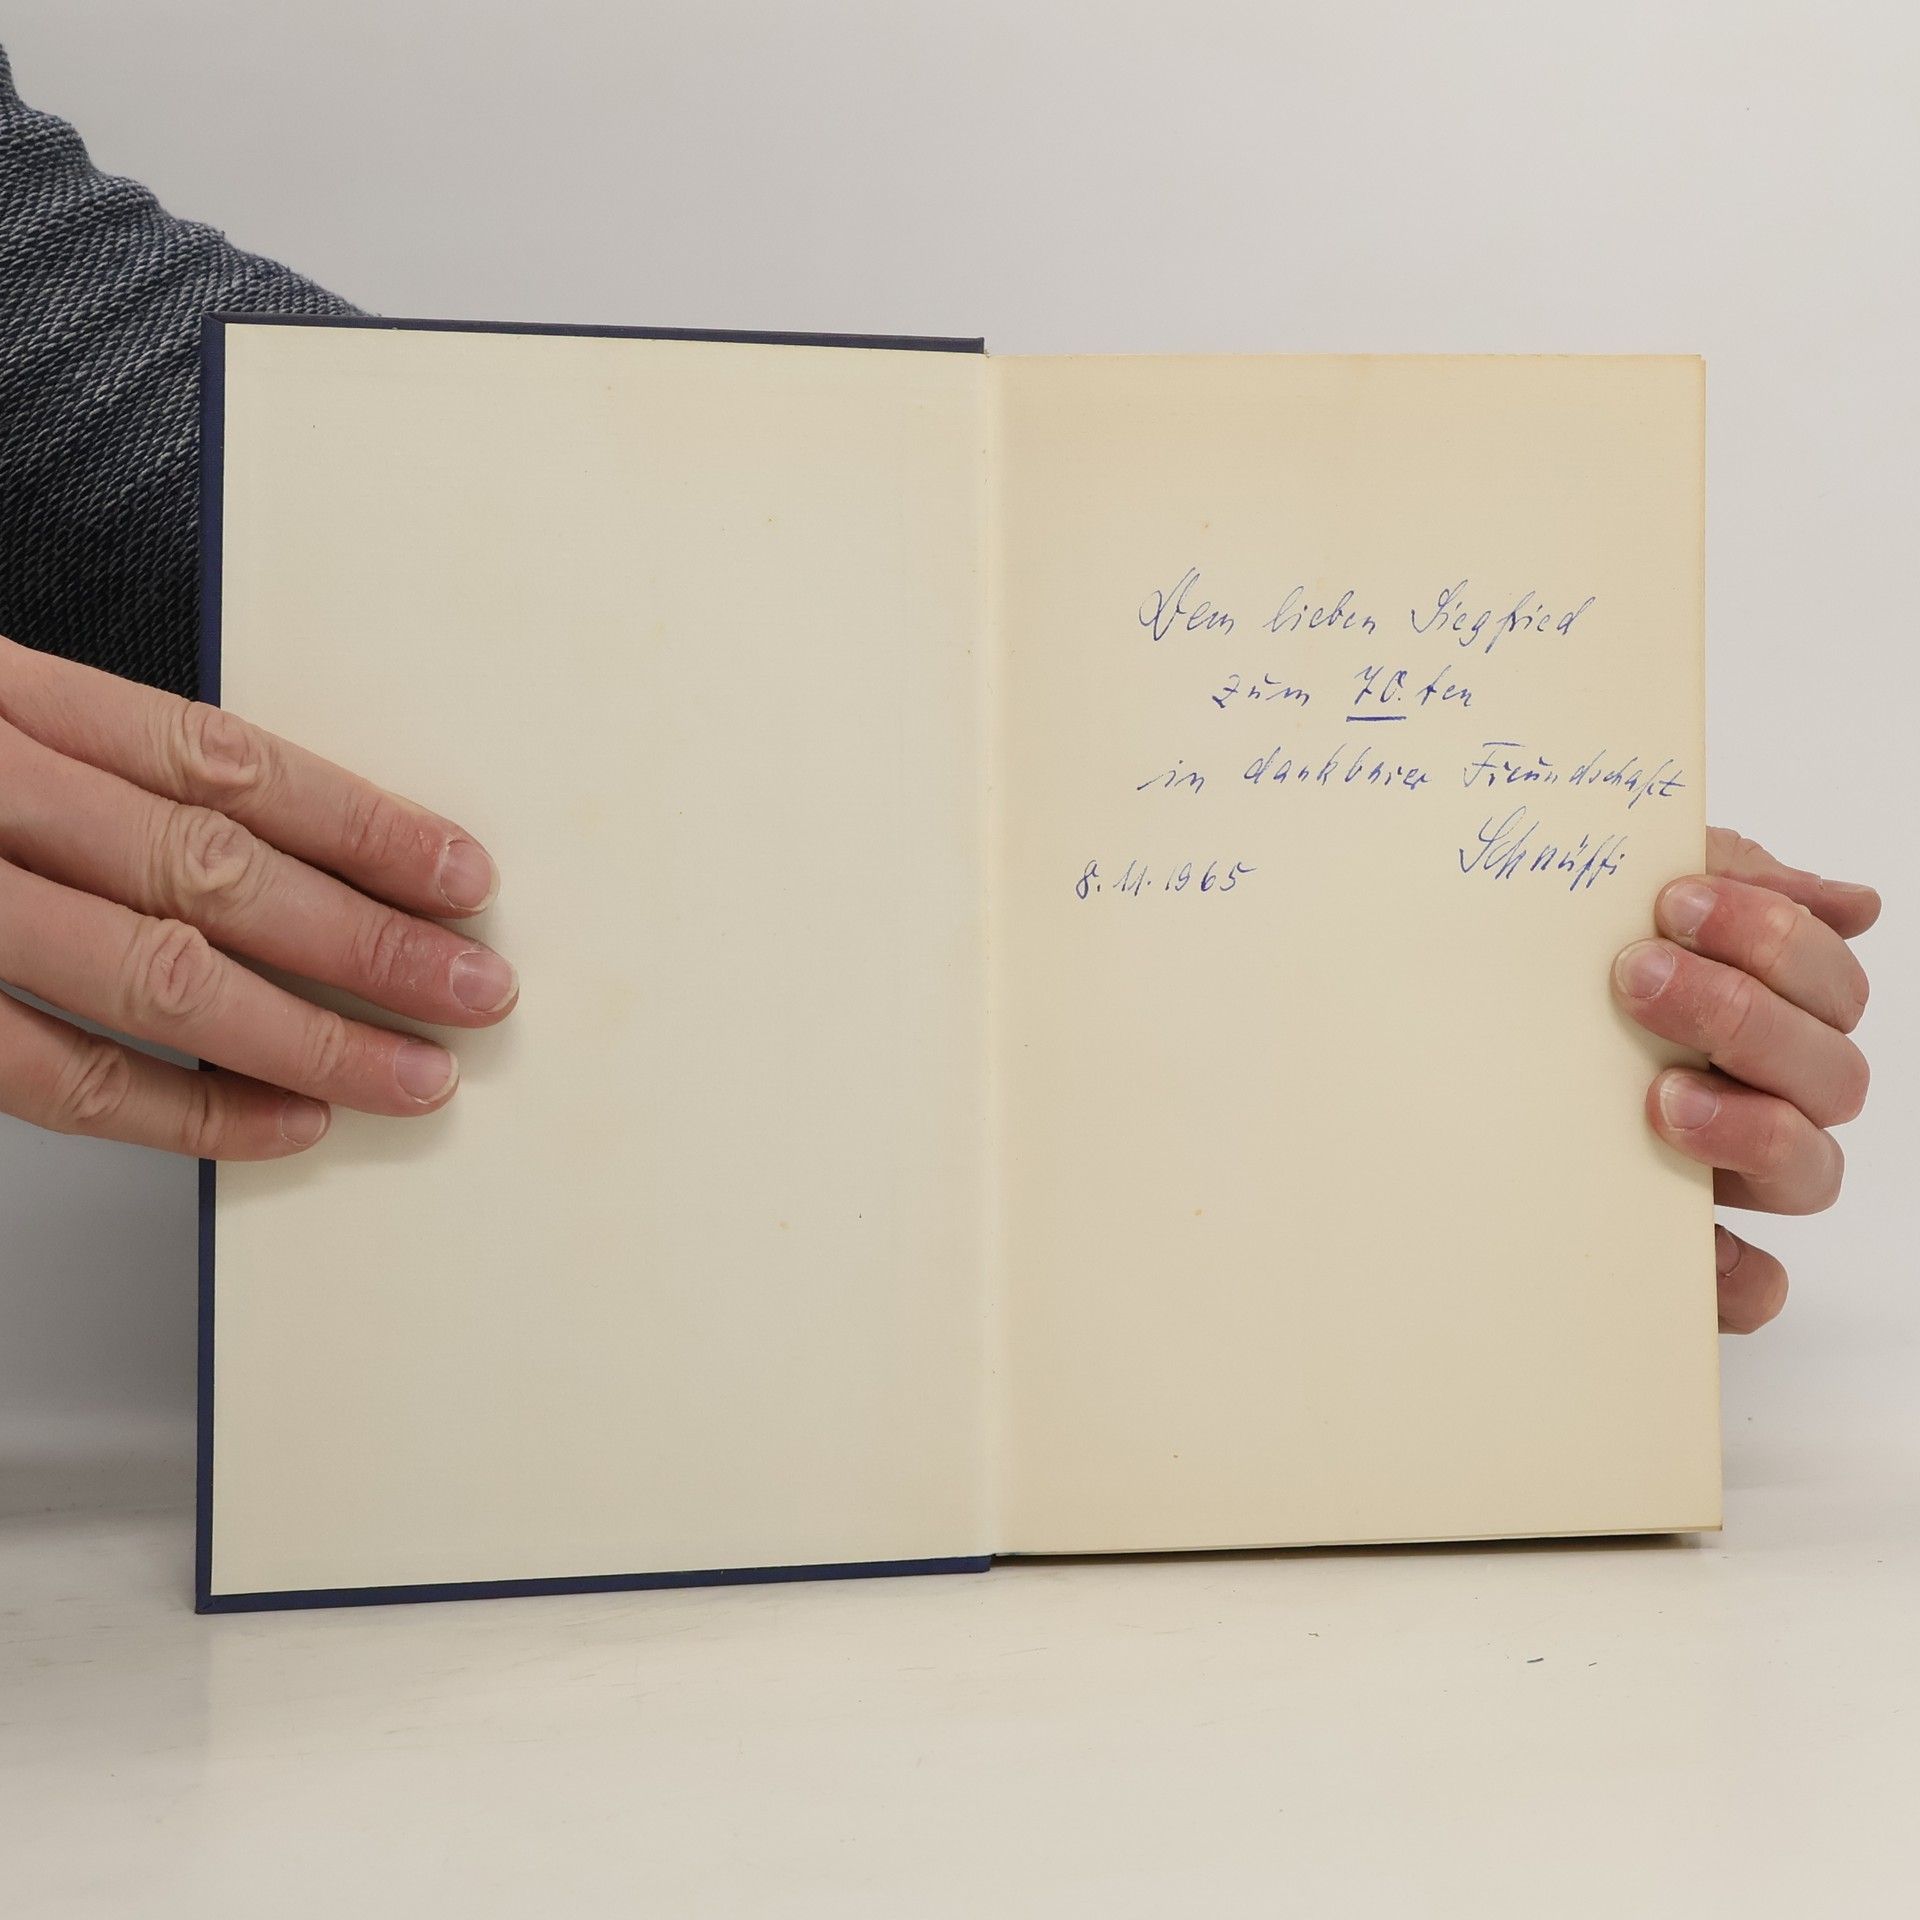 Dem lieben Siegfried
zum 70.ten
in dankbarer Freundschaft
Schnüffi
8.11.1965